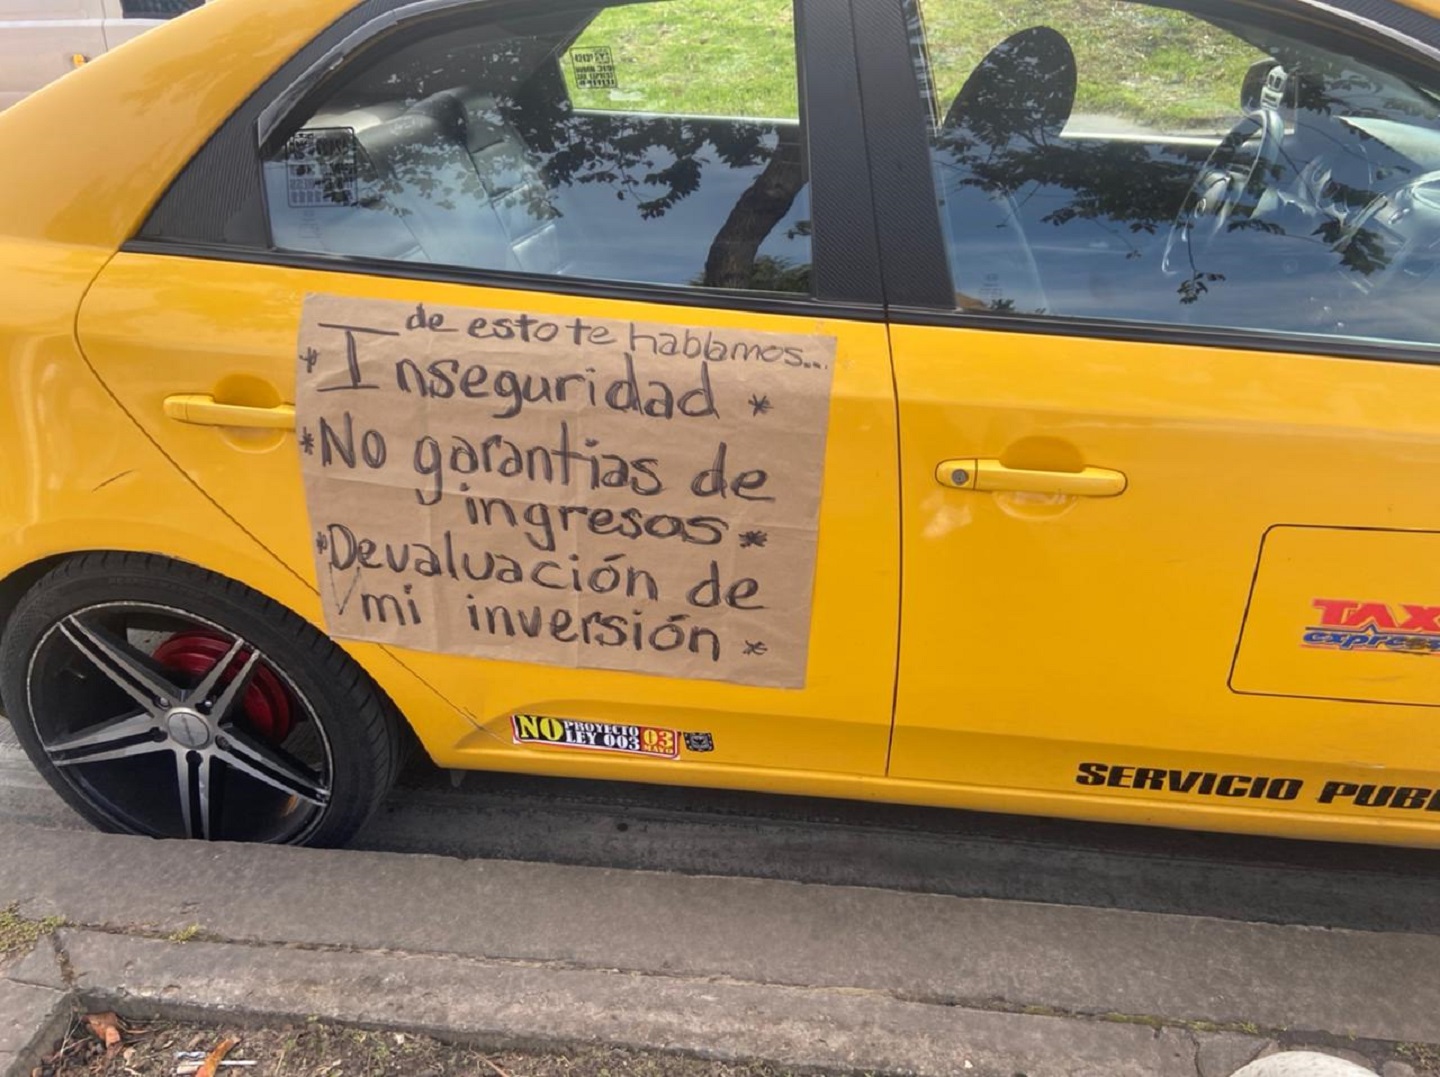 de esto te hablamos...
* Inseguridad *
* No garantias de
ingresos *
* Devaluación de
mi inversión *
NO PROYECTO
LEY 003 03
MAYO
TAX
express
SERVICIO PUB